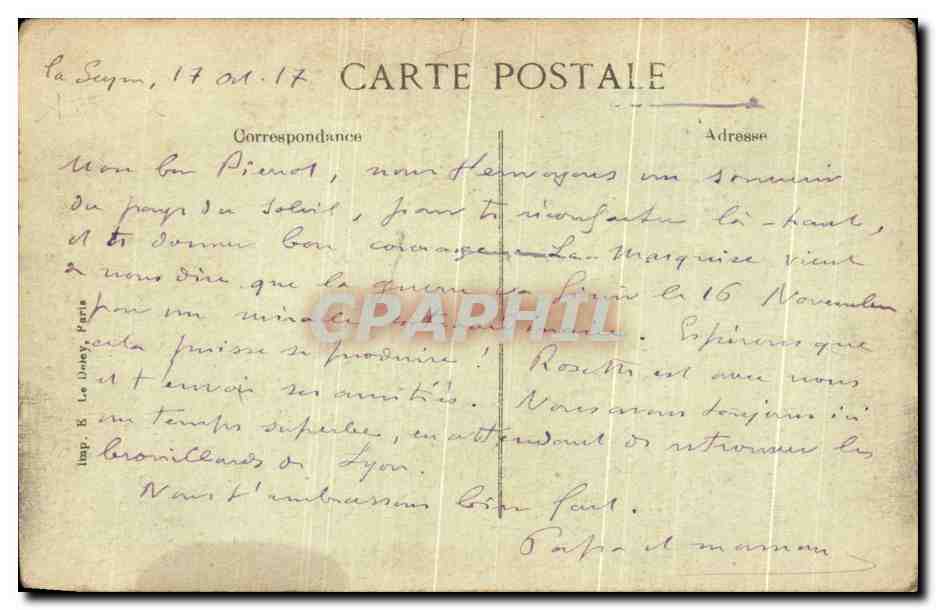 la Seyne, 17 oct. 17
CARTE POSTALE
Correspondance
Adresse
Mon bon Pierrot, nous t'envoyons un souvenir
du pays du soleil, pour te réconforter là-haut,
et te donner bon courage. La Marquise vient
de nous dire que la guerre va finir le 16 Novembre
par un miracle extraordinaire. Espérons que
cela puisse se produire ! Rosette est avec nous
et t'envoie ses amitiés. Nous avons toujours ici
un temps superbe, en attendant de retrouver les
brouillards de Lyon.
Nous t'embrassons bien fort.
Papa et maman
Imp. E. Le Deley, Paris
CPAPHIL